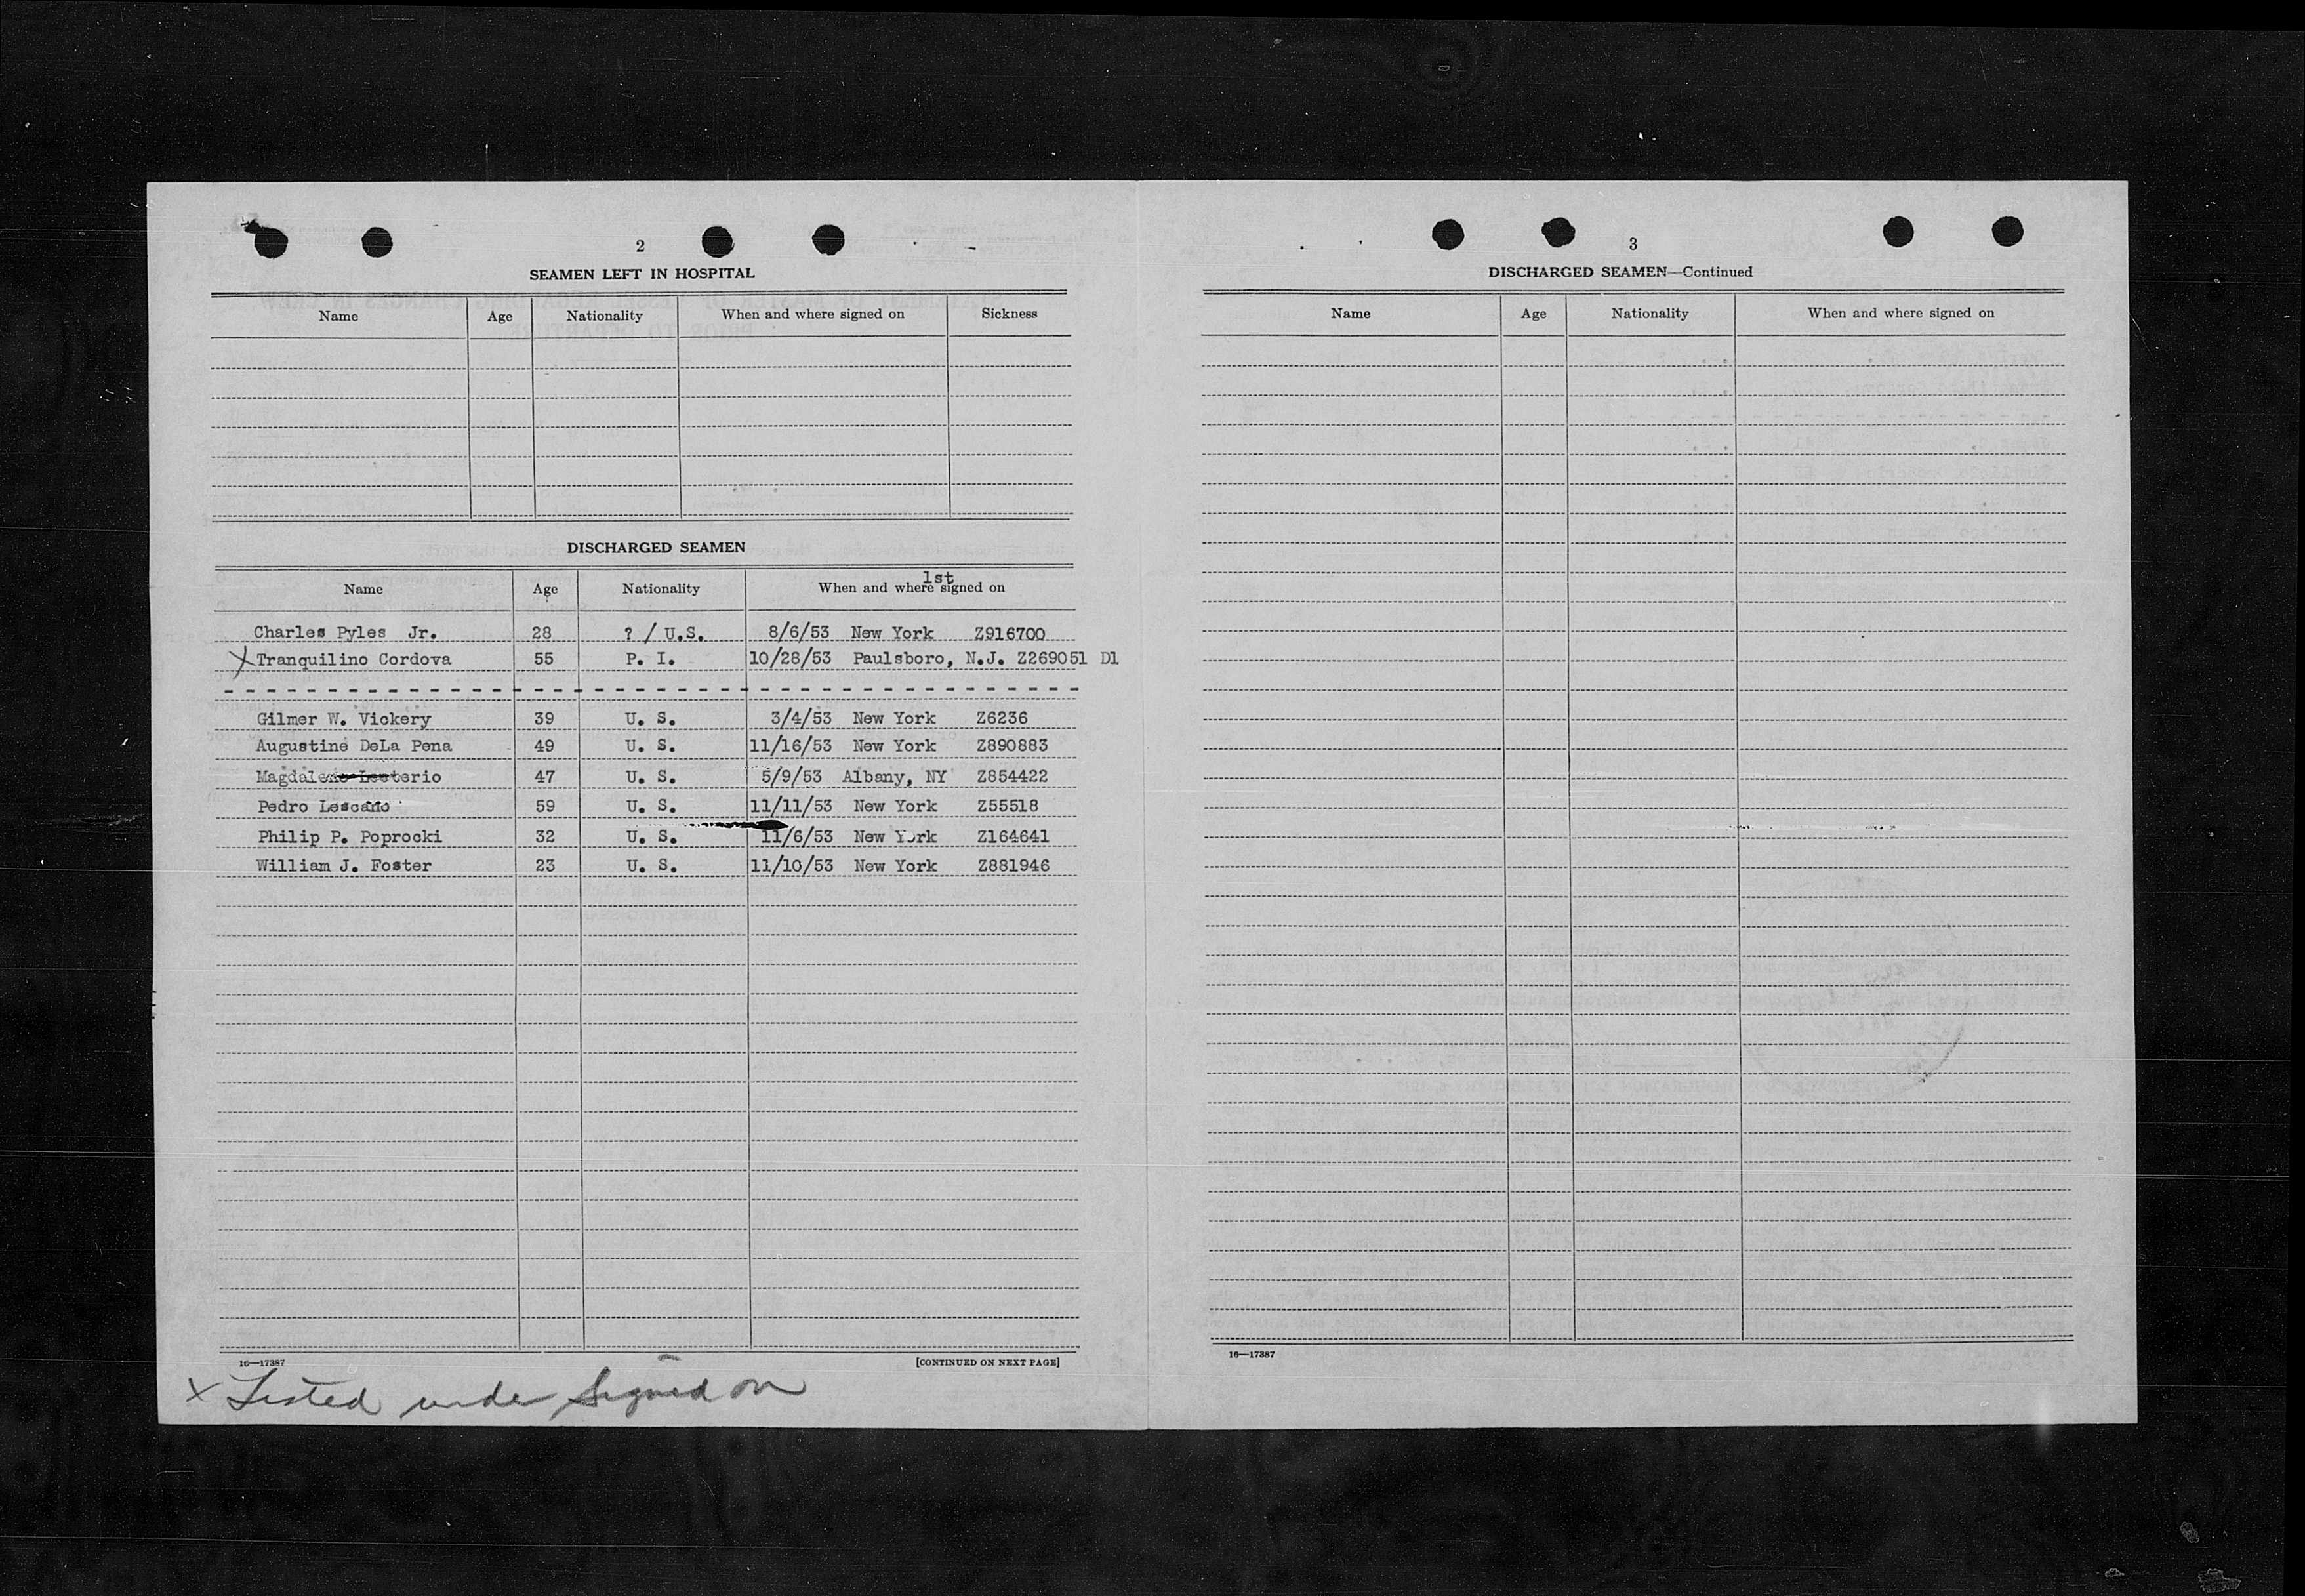 2
SEAMEN LEFT IN HOSPITAL
Name Age Nationality When and where signed on Sickness
DISCHARGED SEAMEN
1st
Name Age Nationality When and where signed on
Charles Pyles Jr. 28 ? / U.S. 8/6/53 New York Z916700
X Tranquilino Cordova 55 P. I. 10/28/53 Paulsboro, N.J. Z269051 D1
Gilmer W. Vickery 39 U. S. 3/4/53 New York Z6236
Augustine DeLa Pena 49 U. S. 11/16/53 New York Z890883
Magdaleno Lesterio 47 U. S. 5/9/53 Albany, NY Z854422
Pedro Lescano 59 U. S. 11/11/53 New York Z55518
Philip P. Poprocki 32 U. S. 11/6/53 New York Z164641
William J. Foster 23 U. S. 11/10/53 New York Z881946
16—17387 [CONTINUED ON NEXT PAGE]
x Listed under Signed on
3
DISCHARGED SEAMEN—Continued
Name Age Nationality When and where signed on
16—17387